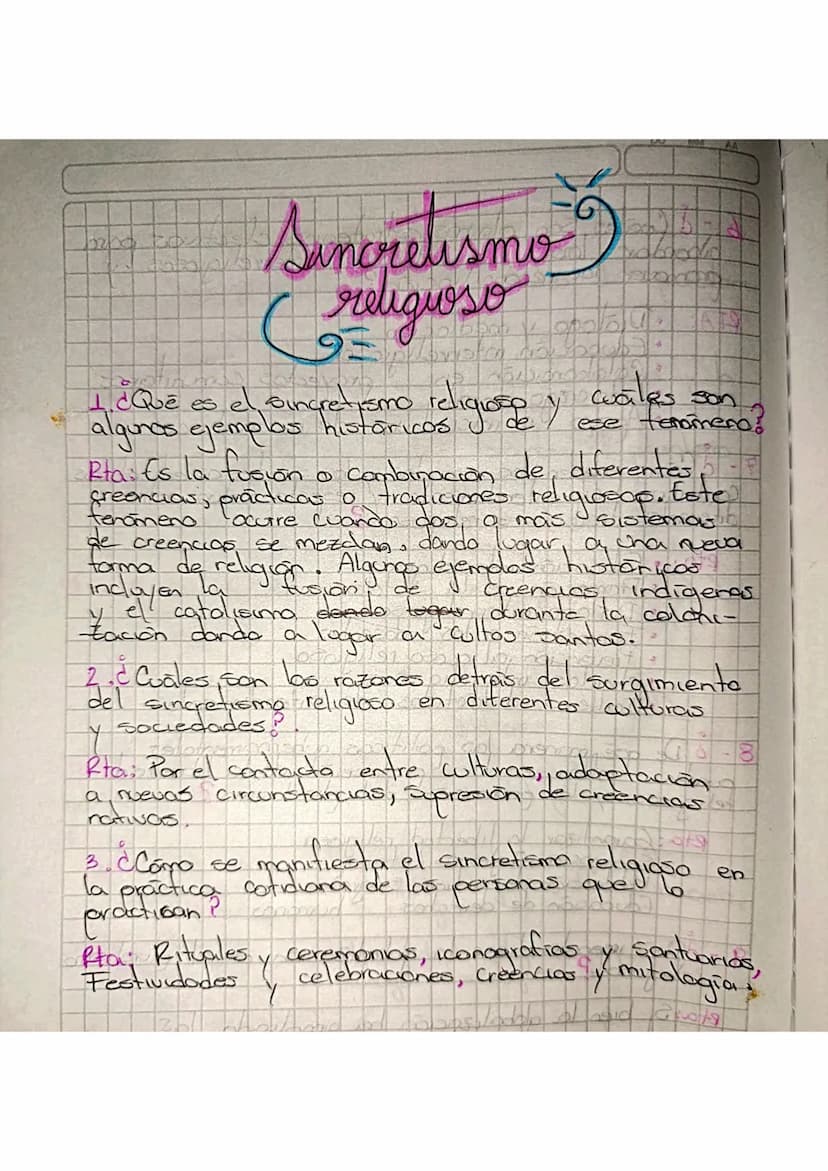 Sincretismo
religioso
1.¿Qué es el sincretismo religioso y cuáles son
algunos ejemplos históricos de ese fenómeno?
Rta: Es la fusión o combinación de diferentes
creencias, prácticas o tradiciones religiosas. Este
fenómeno ocurre cuando dos o más sistemas
de creencias se mezclan, dando lugar a una nueva
forma de religión. Algunos ejemplos históricos
incluyen la fusión de creencias indígenas
y el catolisimo dando lugar durante la coloni-
zación dando a lugar a cultos santos.
2.¿Cuáles son las razones detrás del surgimiento
del sincretismo religioso en diferentes culturas
y sociedades?
Rta: Por el contacto entre culturas, adaptación
a nuevas circunstancias, supresión de creencias
nativas.
3.¿Cómo se manifiesta el sincretismo religioso en
la práctica cotidiana de las personas que lo
practican?
Rta: Rituales y ceremonias, iconografías y santuarios,
Festividades y celebraciones, creencias y mitología.